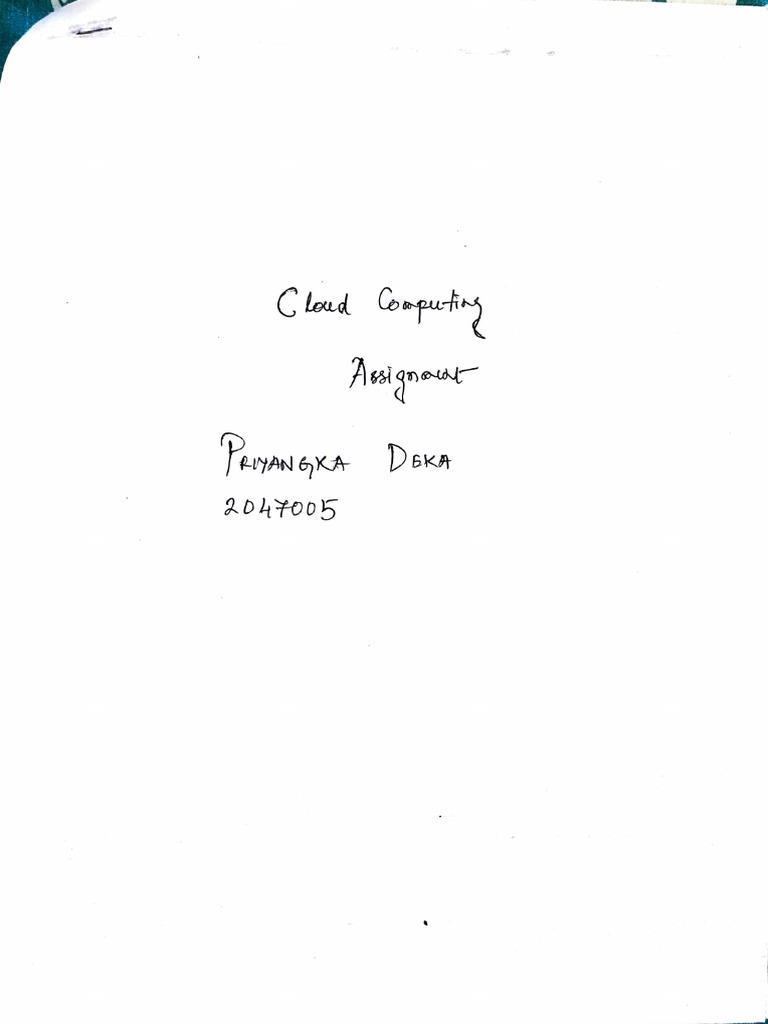 Cloud Computing
Assignment
PRIYANGKA DEKA
2047005